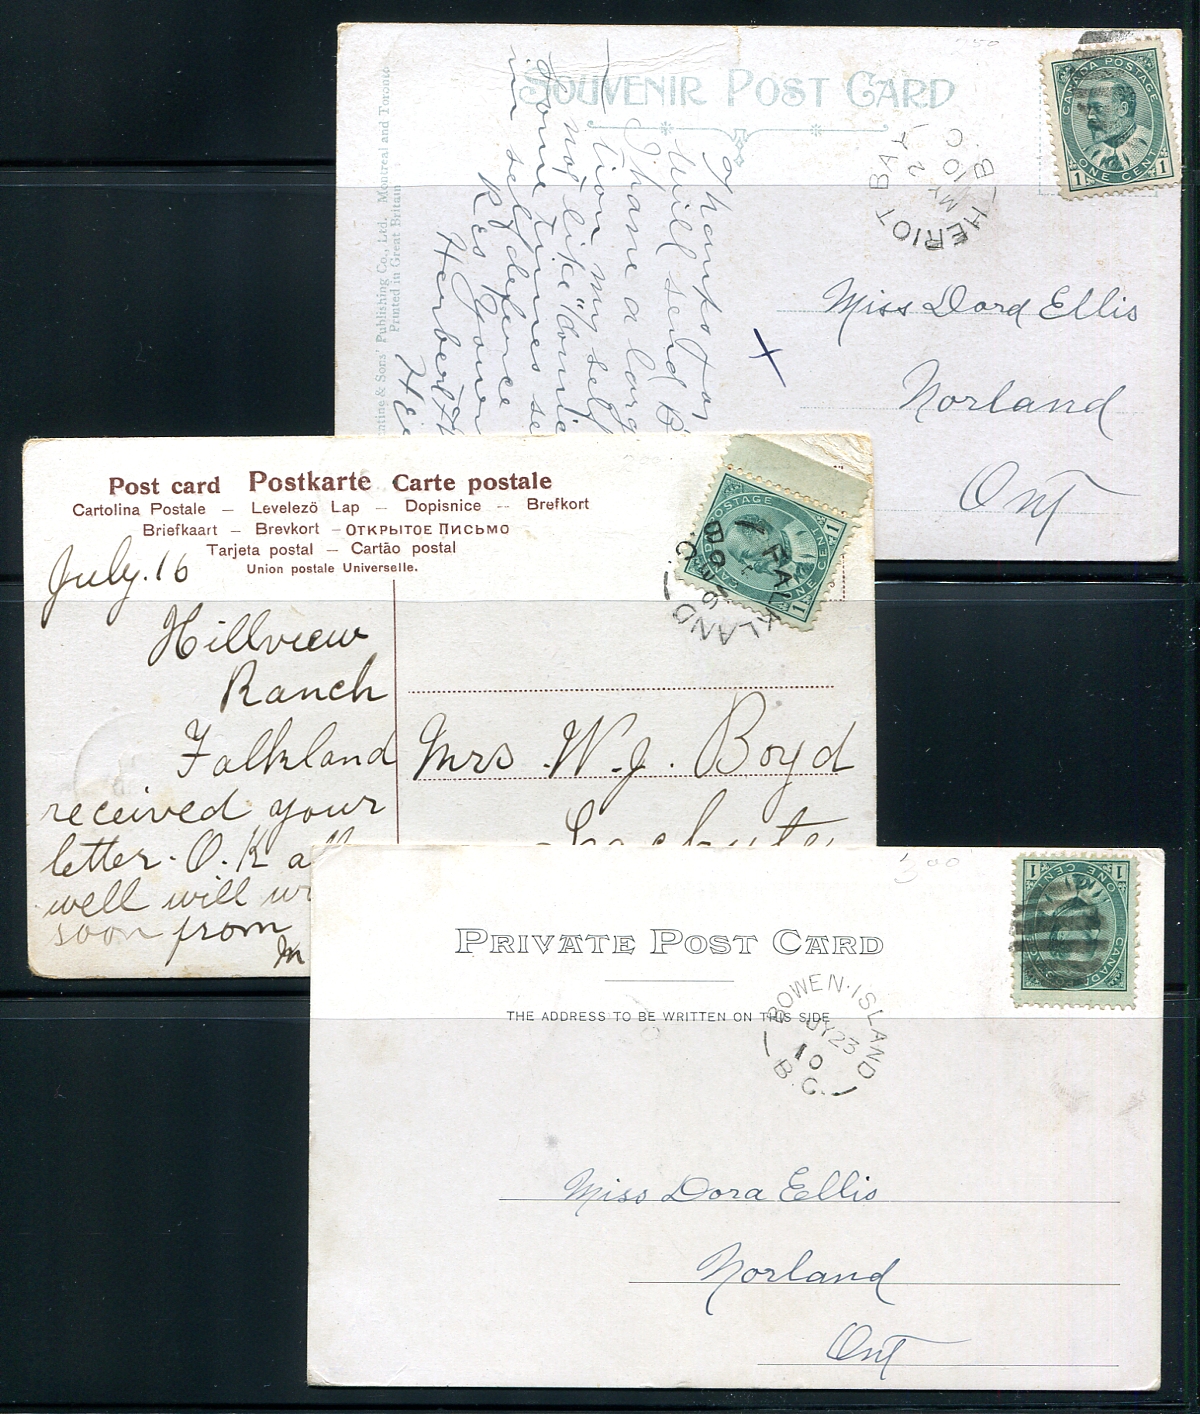 SOUVENIR POST CARD
CANADA POSTAGE
1 ONE CENT 1
HERIOT BAY
MY 2
10
B.C.
Thanks for
Will send B
I have a larg
tion my self
not like "Comic
Some times se
in self defence
Yours
Herbert H
ntine & Sons' Publishing Co., Ltd. Montreal and Toronto
Printed in Great Britain
Miss Dord Ellis
Norland
Ont
Post card Postkarte Carte postale
Cartolina Postale — Levelezö Lap — Dopisnice -- Brefkort
Briefkaart — Brevkort — ОТКРЫТОЕ ПИСЬМО
Tarjeta postal — Cartão postal
Union postale Universelle.
POSTAGE
1 CENT 1
FALKLAND
July. 16
Hillview
Ranch
Falkland
received your
letter. O.K all
well will wr
soon from
M
Mrs W. J. Boyd
Lachute
PRIVATE POST CARD
THE ADDRESS TO BE WRITTEN ON THIS SIDE
1 ONE CENT 1
CANADA
BOWEN·ISLAND
JY 23
10
B.C.
Miss Dora Ellis
Norland
Ont